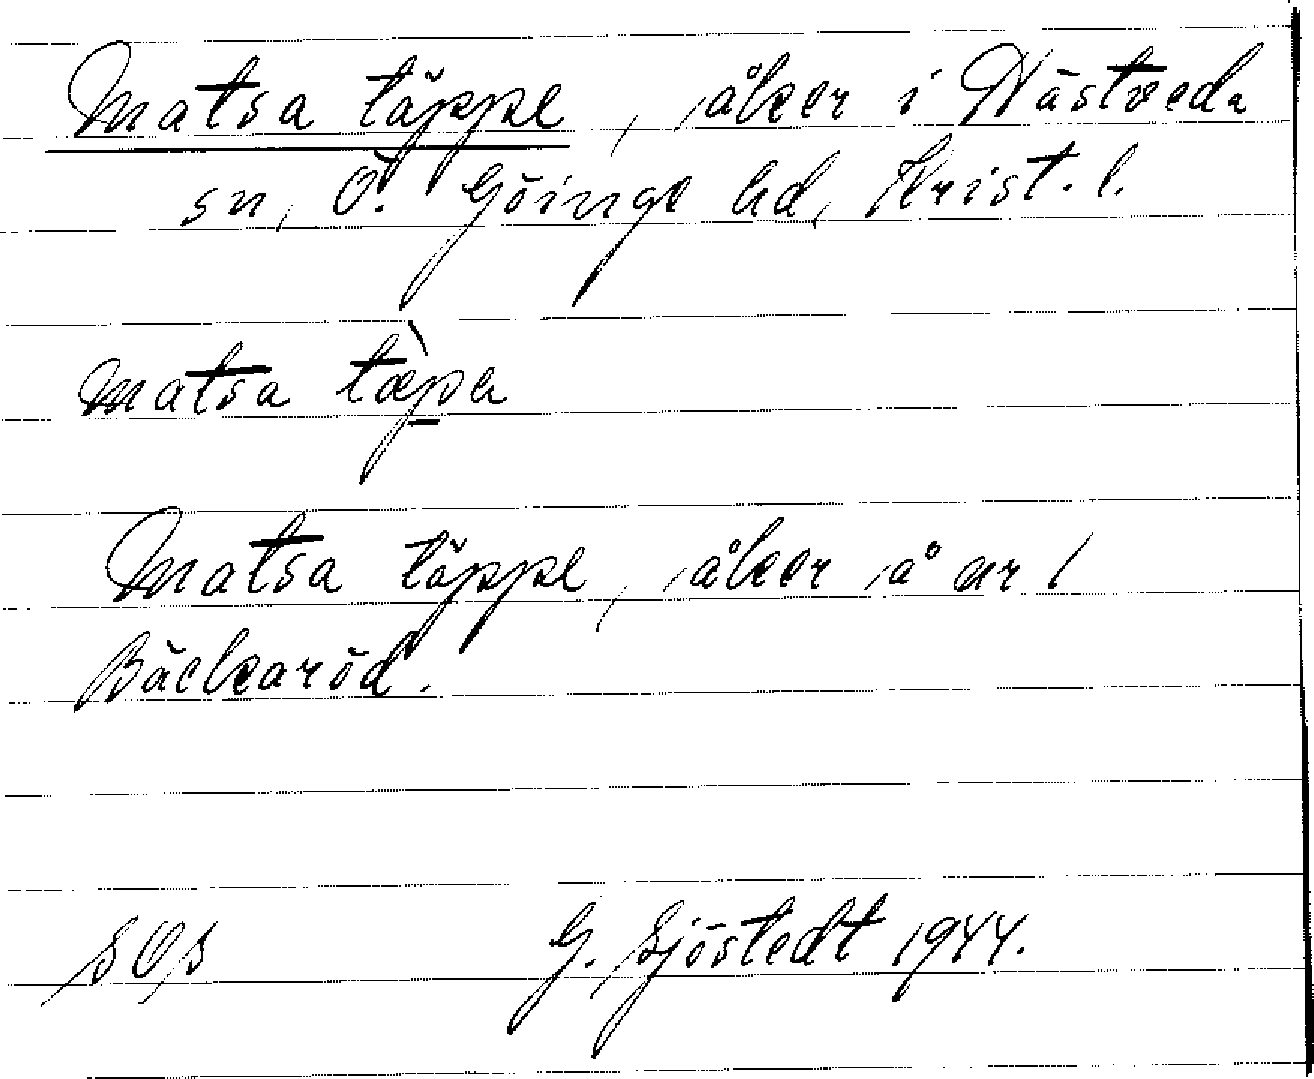 Matsa täppe, åker i Nästveda
sn, Ö. Göinge hd, Krist. l.
matsa tæ̀pa
Matsa täppe, åker å nr 1
Bäckaröd.
SOS G. Sjöstedt 1944.